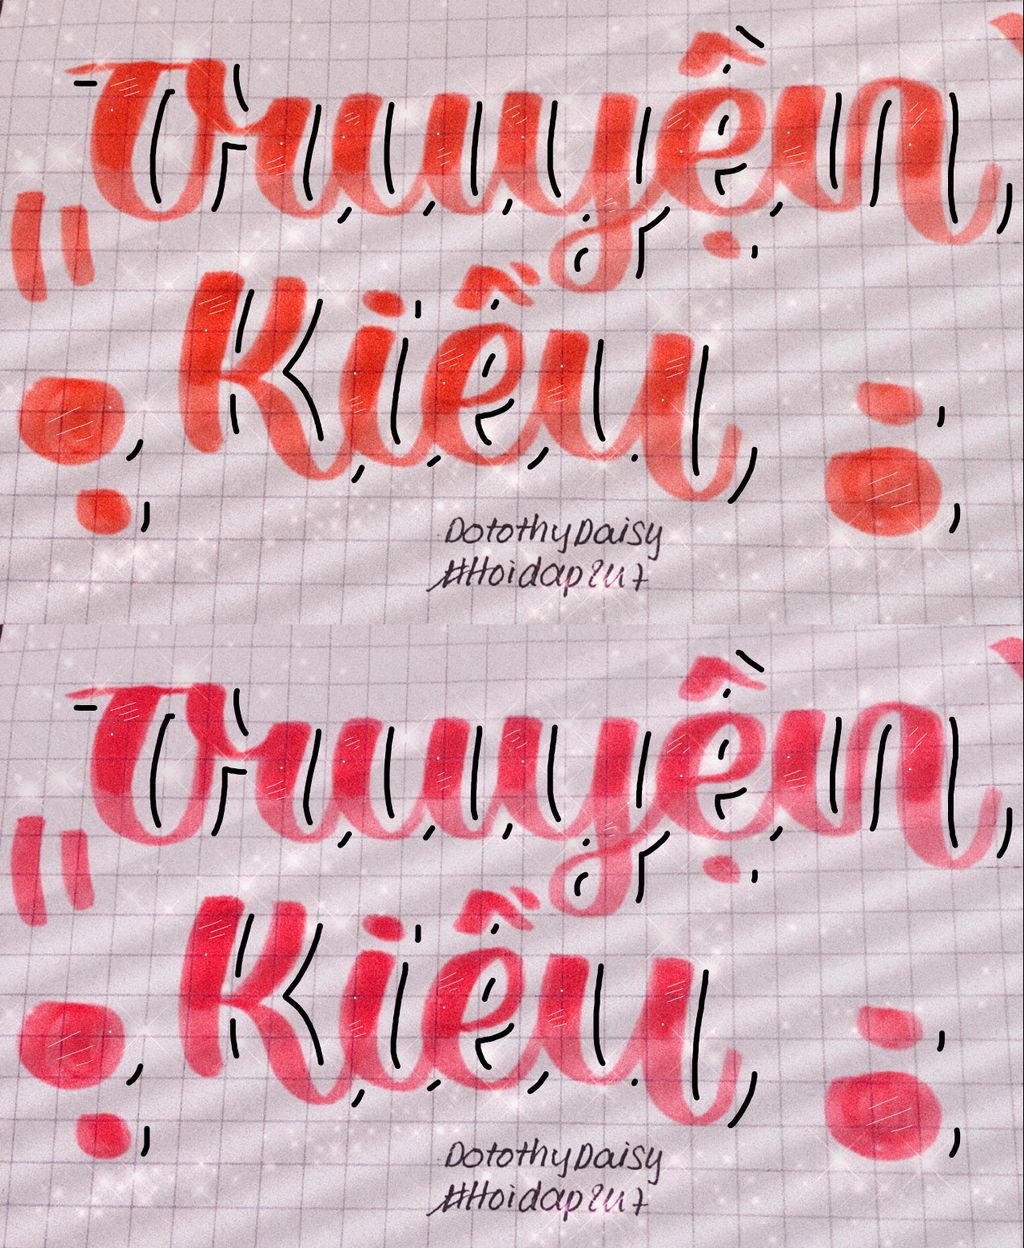 Truyện
Kiều
DotothyDaisy
#Hoidap247
Truyện
Kiều
DotothyDaisy
#Hoidap247